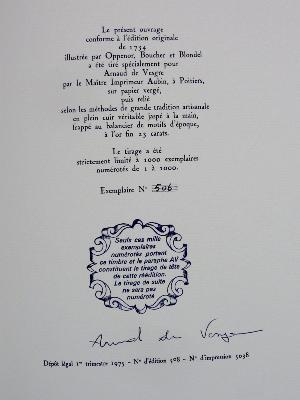 Le présent ouvrage
conforme à l'édition originale
de 1734
illustrée par Oppenor, Boucher et Blondel
a été tiré spécialement pour
Arnaud de Vesgre
par le Maître Imprimeur Aubin, à Poitiers,
sur papier vergé,
puis relié
selon les méthodes de grande tradition artisanale
en plein cuir véritable jaspé à la main,
frappé au balancier de motifs d'époque,
à l'or fin 23 carats.
Le tirage a été
strictement limité à 1000 exemplaires
numérotés de 1 à 1000.
Exemplaire N° 506
Seuls ces mille
exemplaires
numérotés portent
ce timbre et le paraphe AV
constituent le tirage de tête
de cette réédition.
Le tirage de suite
ne sera pas
numéroté
Arnaud de Vesgre
Dépôt légal 1er trimestre 1975 - N° d'édition 508 - N° d'impression 5038